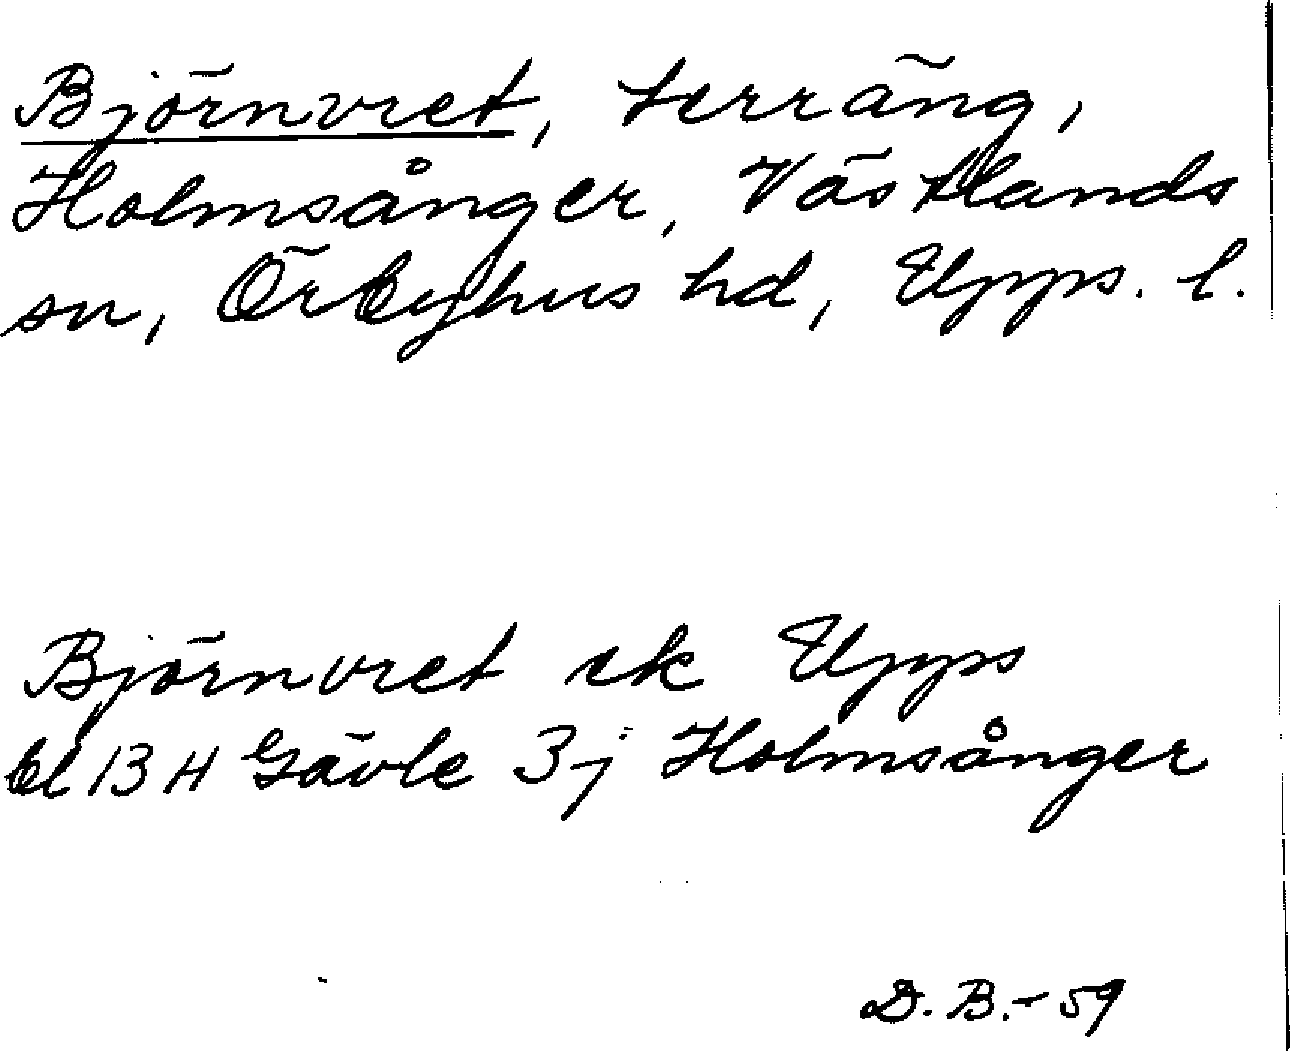 Björnvret, terräng,
Holmsånger, Västlands
sn, Örbyhus hd, Upps. l.
Björnvret ek Upps
bl 13 H Gävle 3j Holmsånger
D. B. - 59